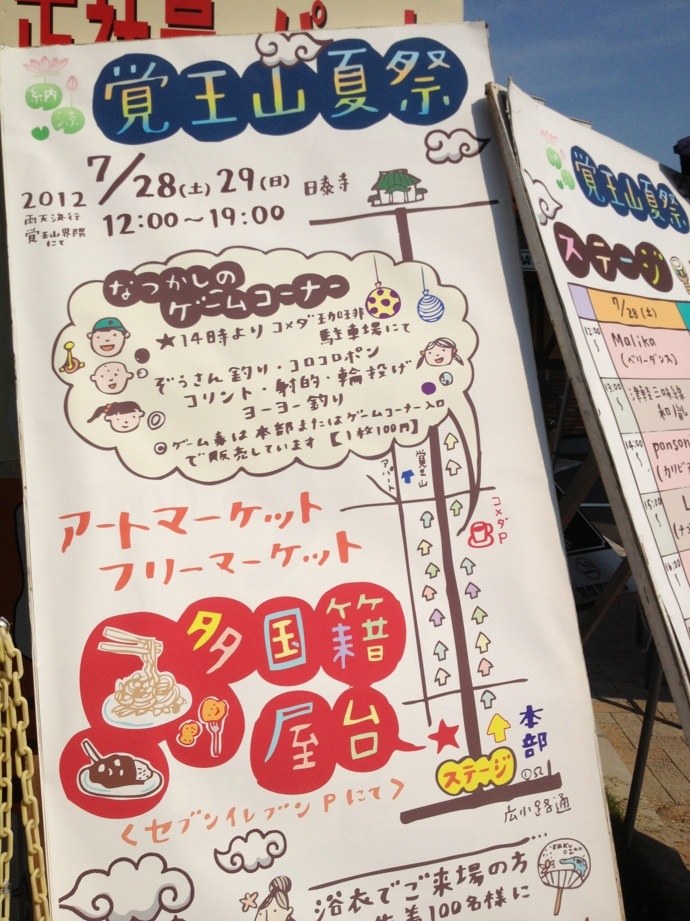 正社員・パート
納涼
覚王山夏祭
2012 7/28(土) 29(日)
雨天決行
覚王山界隈
にて
12:00～19:00
日泰寺
なつかしの
ゲームコーナー
★14時より コメダ珈琲
駐車場にて
ぞうさん釣り・コロコロポン
コリント・射的・輪投げ
ヨーヨー釣り
◎ゲーム券は本部またはゲームコーナー入口
で販売しています【1枚100円】
覚王山
アパート
コメダP
アートマーケット
フリーマーケット
多国籍
屋台
本部
ステージ
広小路通
＜セブンイレブンPにて＞
浴衣でご来場の方
先着100名様に
覚王山夏祭
ステージ
7/28(土)
12:00～
Malika
(ベリーダンス)
13:00～
津軽三味線
14:00～
15:00～
16:00～